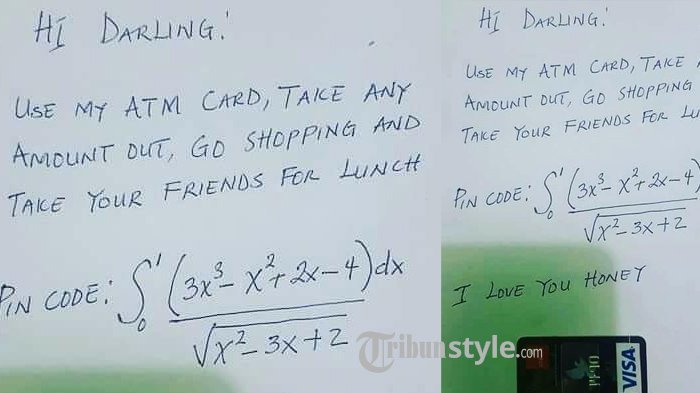 HI DARLING!
USE MY ATM CARD, TAKE ANY
AMOUNT OUT, GO SHOPPING AND
TAKE YOUR FRIENDS FOR LUNCH
PIN CODE: ∫₀¹ (3x³ - x² + 2x - 4)dx
√x² - 3x + 2
HI DARLING!
USE MY ATM CARD, TAKE
AMOUNT OUT, GO SHOPPING
TAKE YOUR FRIENDS FOR LU
PIN CODE: ∫₀¹ (3x³ - x² + 2x - 4)
√x² - 3x + 2
I LOVE YOU HONEY
Tribunstyle.com
VISA